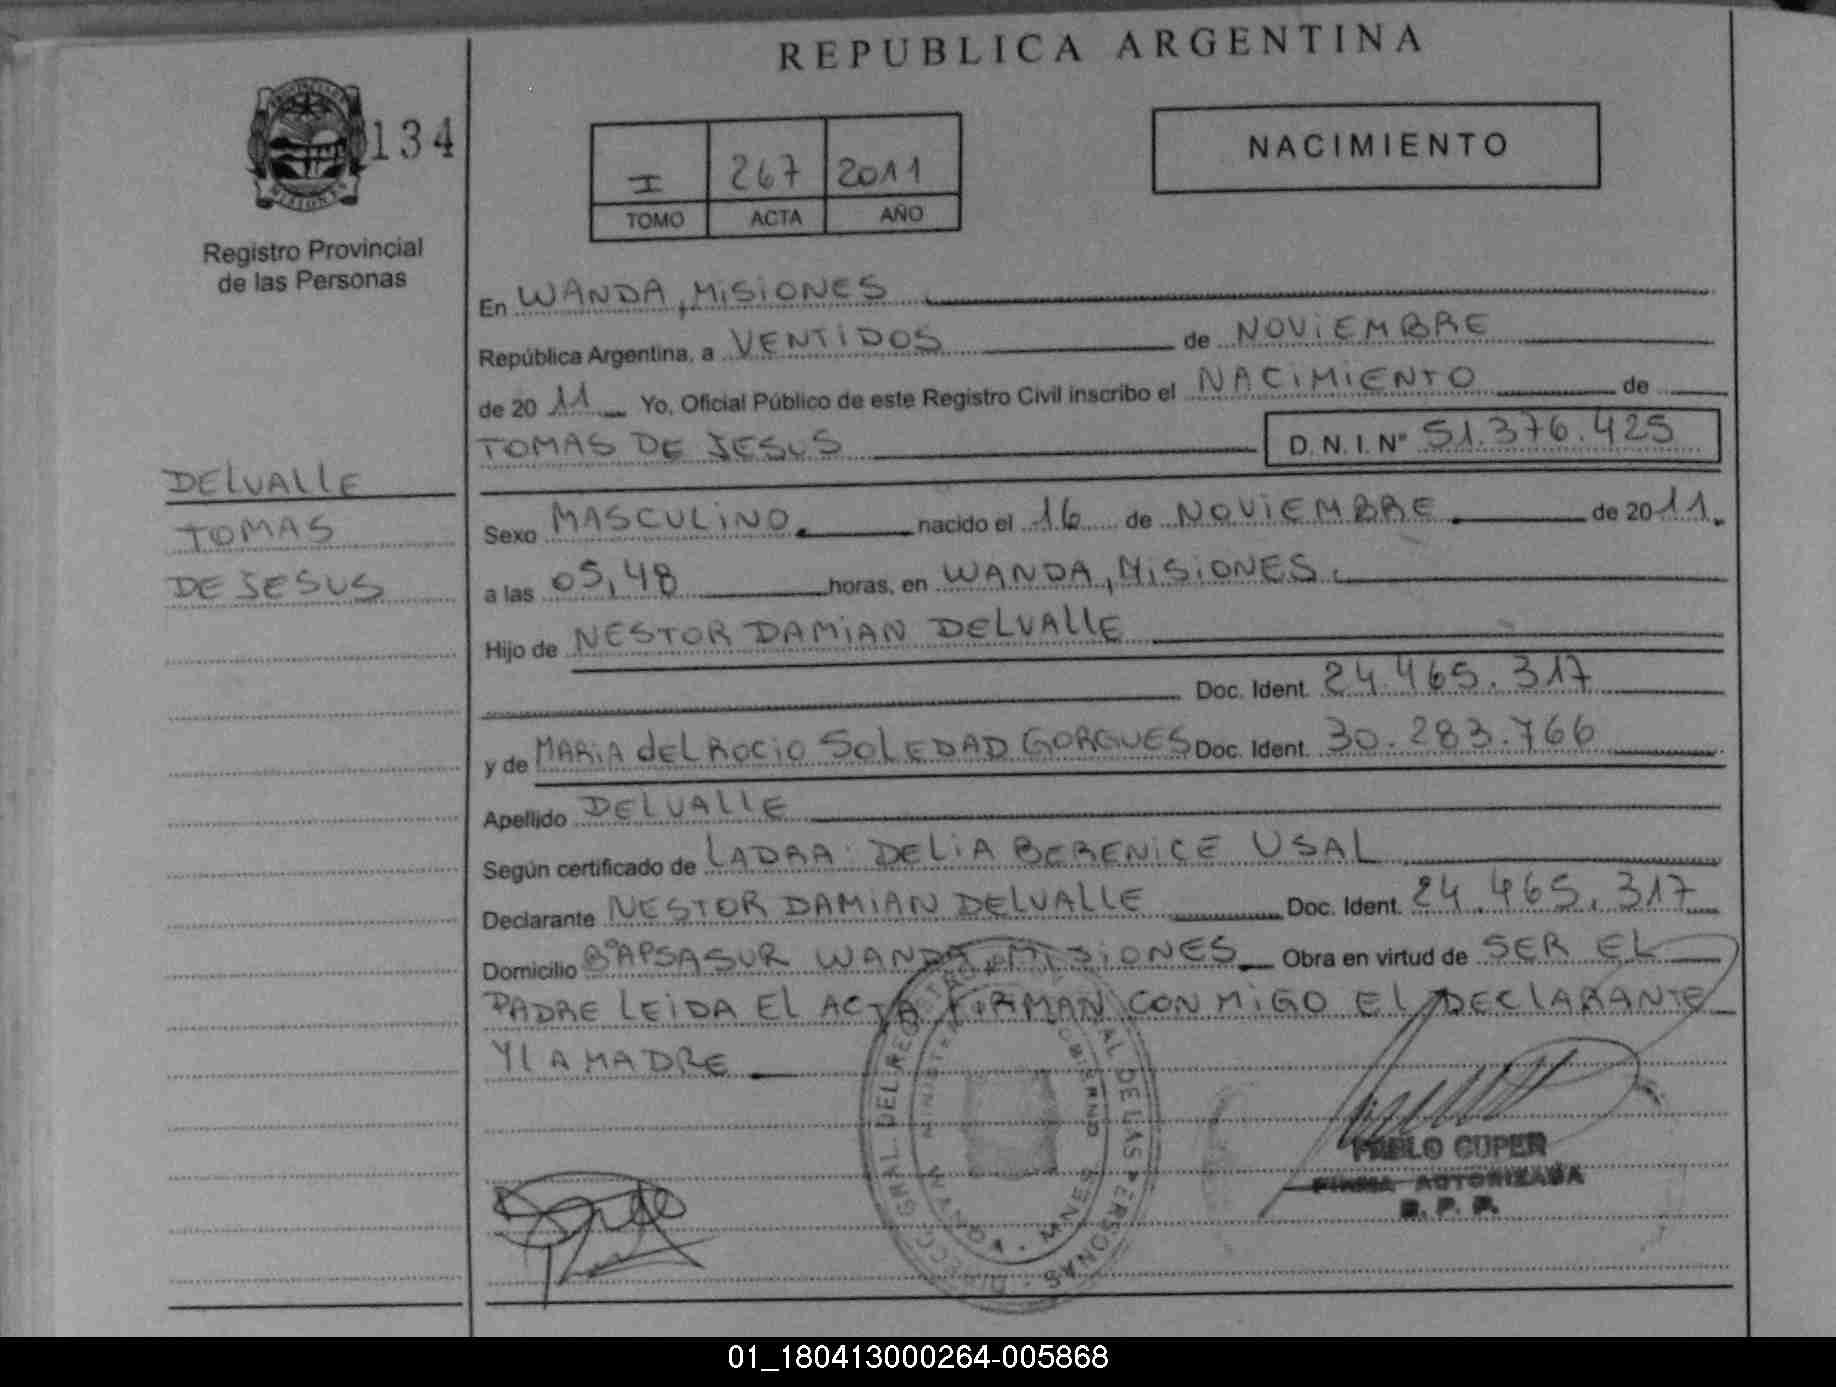 REPUBLICA ARGENTINA
134
Registro Provincial
de las Personas
I 267 2011
TOMO ACTA AÑO
NACIMIENTO
DELVALLE
TOMAS
DE JESUS
En WANDA, MISIONES
República Argentina, a VENTIDOS de NOVIEMBRE
de 20 11 Yo, Oficial Público de este Registro Civil inscribo el NACIMIENTO de
TOMAS DE JESUS D.N.I. Nº 51.376.425
Sexo MASCULINO. nacido el 16 de NOVIEMBRE de 20 11.
a las 05,48 horas, en WANDA, MISIONES.
Hijo de NESTOR DAMIAN DELVALLE
Doc. Ident. 24.465.317
y de MARIA del ROCIO SOLEDAD GORGUES Doc. Ident. 30.283.766
Apellido DELVALLE
Según certificado de LA DRA. DELIA BERENICE USAL
Declarante NESTOR DAMIAN DELVALLE Doc. Ident. 24.465.317
Domicilio Bº APSA SUR WANDA, MISIONES Obra en virtud de SER EL
PADRE LEIDA EL ACTA FIRMAN CONMIGO EL DECLARANTE
Y LA MADRE
PABLO CUPER
FIRMA AUTORIZADA
R. P. P.
01_180413000264-005868